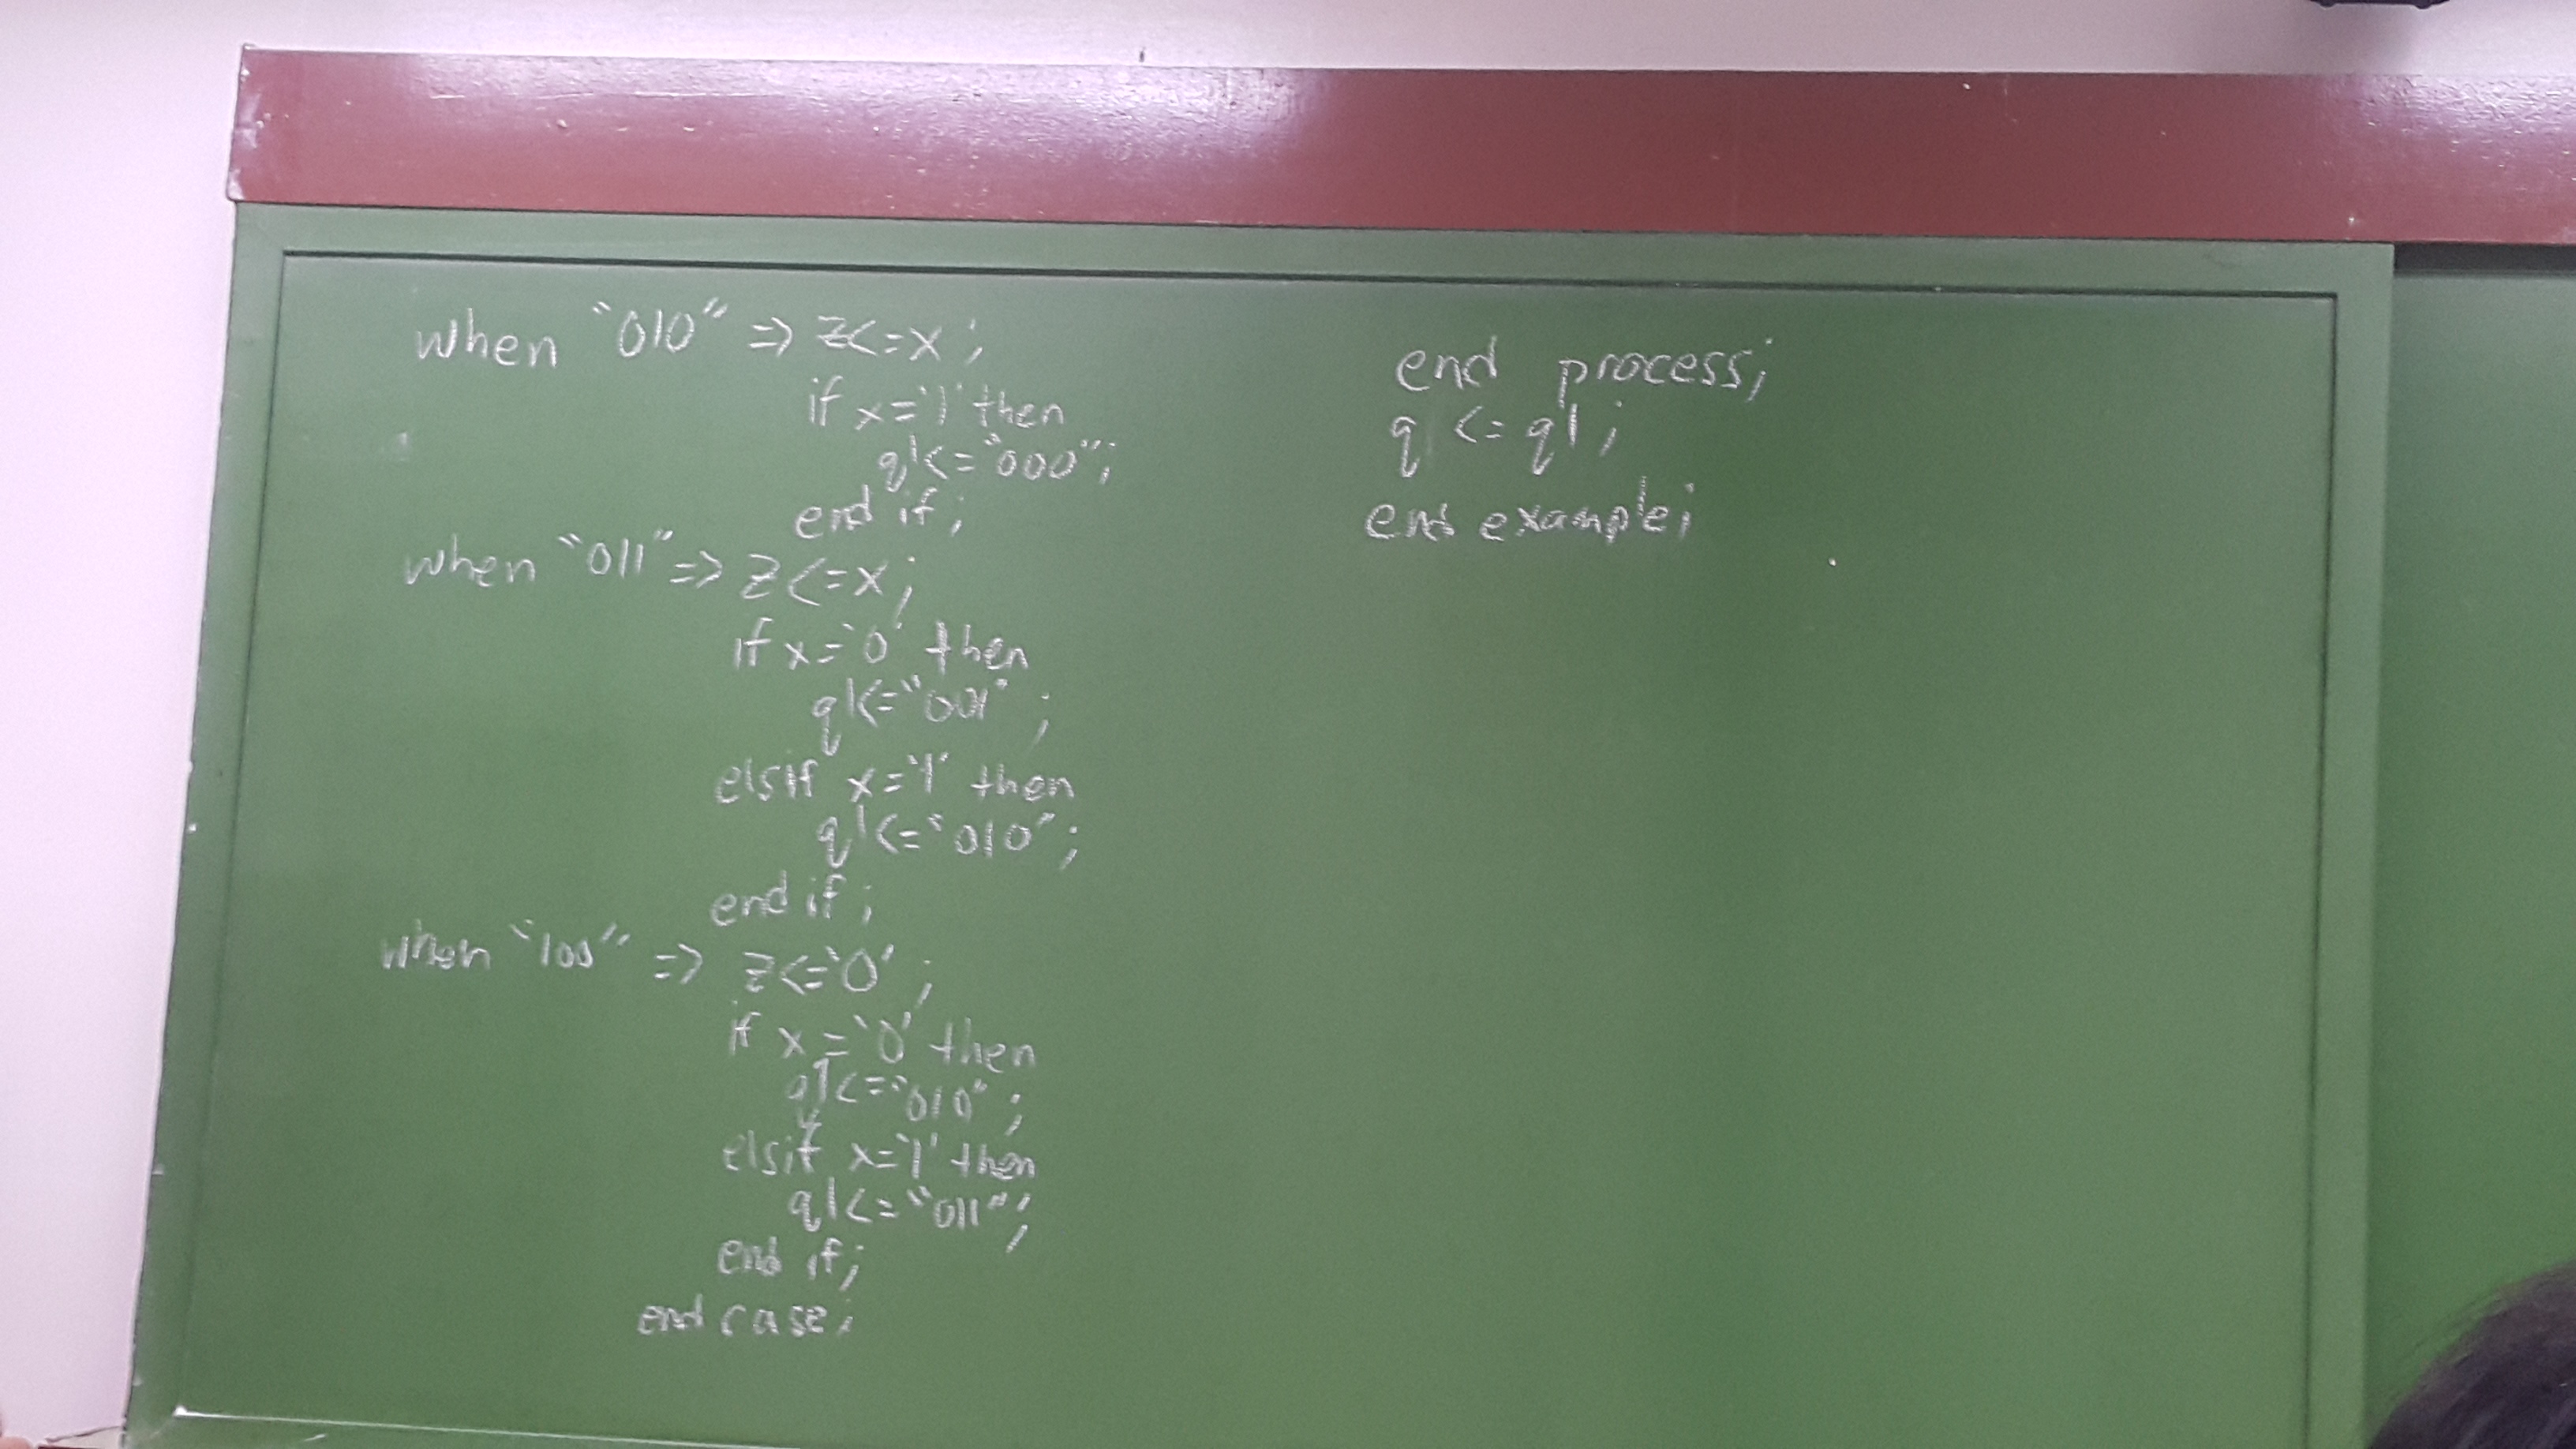 when "010" => z<=x;
if x='1' then
q1<="000";
end if;
when "011" => z<=x;
if x='0' then
q1<="001";
elsif x='1' then
q1<="010";
end if;
when "100" => z<='0';
if x='0' then
q1<="010";
elsif x='1' then
q1<="011";
end if;
end case;
end process;
q <= q1;
end example;